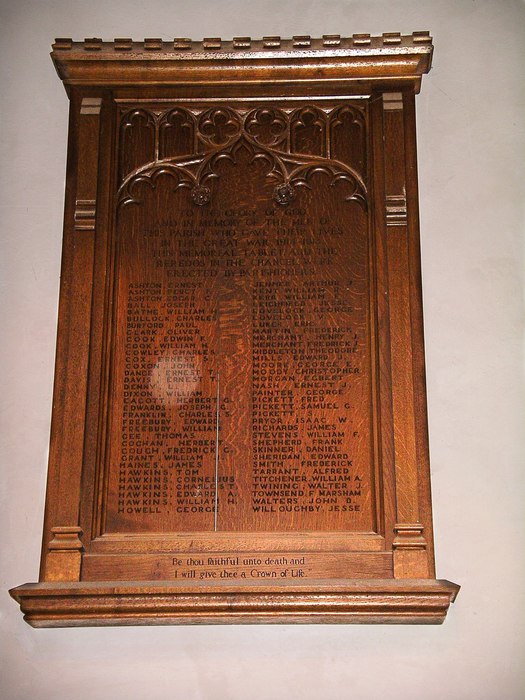 TO THE GLORY OF GOD
AND IN MEMORY OF THE MEN OF
THIS PARISH WHO GAVE THEIR LIVES
IN THE GREAT WAR
THIS MEMORIAL TABLET AND THE
REREDOS IN THE CHANCEL WERE
ERECTED BY PARISHIONERS
ASHTON ERNEST
ASHTON PERCY
ASHTON EDGAR C.
BALL JOSEPH
BATHE WILLIAM H.
BULLOCK, CHARLES
BURFORD, PAUL
CLARK, OLIVER
COOK, EDWIN F.
COOK, WILLIAM H.
COWLEY, CHARLES
COX, ERNEST
COXON, JOHN
DANCE, ERNEST T.
DAVIS, ERNEST T.
DENNY,
DIXON WILLIAM
EACOTT, HERBERT G.
EDWARDS, JOSEPH G.
FRANKLIN, CHARLES S.
FREEBURY, EDWARD
FREEBURY, WILLIAM
GEE THOMAS
GOGHAN, HERBERT
GOUGH, FREDRICK G.
GRANT, WILLIAM
HAINES, JAMES
HAWKINS, TOM
HAWKINS, CORNELIUS
HAWKINS, CHARLES T.
HAWKINS, EDWARD A.
HAWKINS, WILLIAM H.
HOWELL, GEORGE
JENNER, ARTHUR J.
KENT, WILLIAM
KERR, WILLIAM
JESSE
LOVELOCK, GEORGE
LOVELOCK,
LUKER, ERIC
MARTIN, FREDERICK
MERCHANT, HENRY J.
MERCHANT, FREDRICK J.
MIDDLETON, THEODORE
MILLS, EDWARD J.
MOORE, GEORGE
MOODY, CHRISTOPHER
MORGAN, EGBERT
NASH, ERNEST J.
PAINTER, GEORGE
PICKETT, FRED
PICKETT, SAMUEL G.
PICKETT, S.
PRYOR, ISAAC W.
RICHARDS, JAMES
STEVENS, WILLIAM F.
SHEPHERD, FRANK
SKINNER, DANIEL
SHERIDAN, EDWARD
SMITH, FREDERICK
TARRANT, ALFRED
TITCHENER, WILLIAM A.
TWINING, WALTER J.
TOWNSEND, F. MARSHAM
WALTERS, JOHN B.
WILLOUGHBY, JESSE
"Be thou faithful unto death and
I will give thee a Crown of Life."